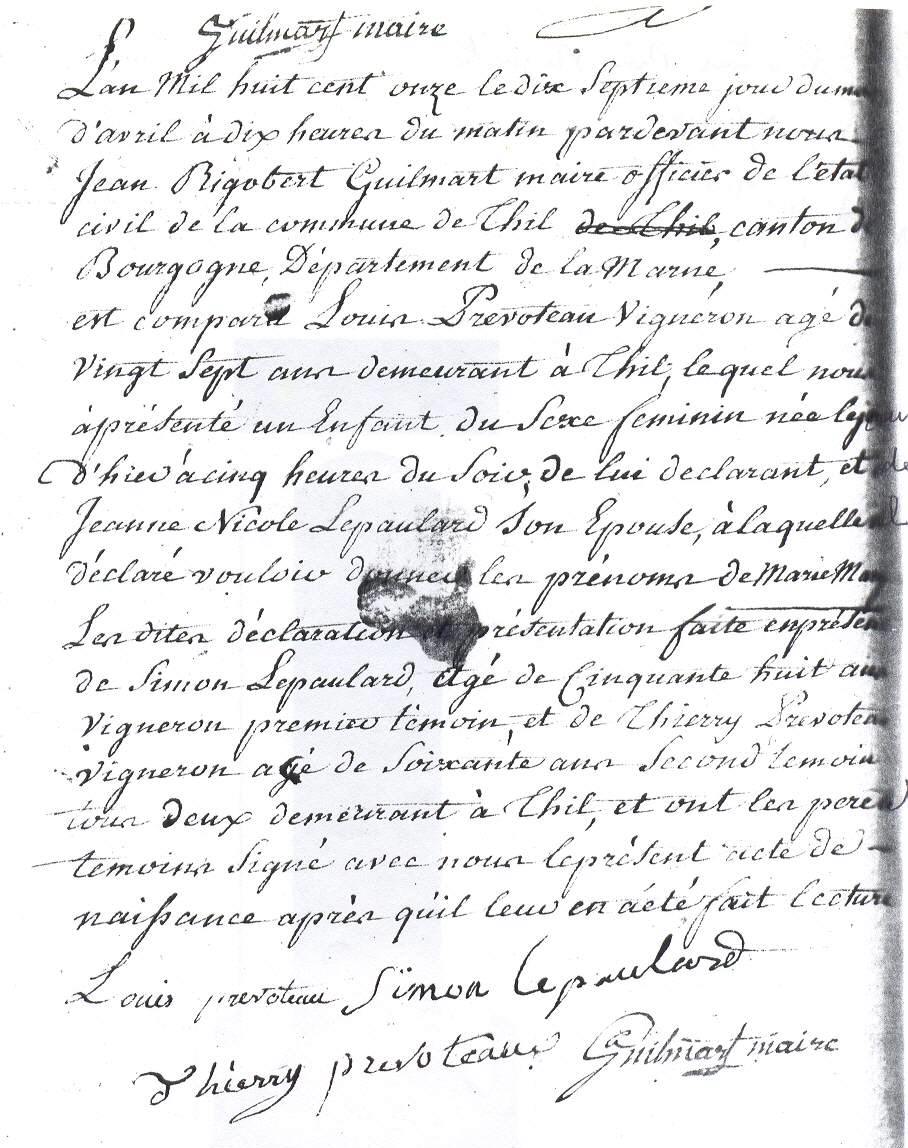 Guilmart maire
L'an Mil huit cent onze le dix Septieme jour du
d'avril à dix heures du matin pardevant nous
Jean Rigobert Guilmart maire officier de l'etat
civil de la commune de Thil de Thil, canton de
Bourgogne, Département de la Marne
est comparu Louis Prevoteau Vigneron agé de
Vingt Sept ans demeurant à Thil, lequel nous
à présenté un Enfant du Sexe feminin née le jour
D'hier à cinq heures du Soir, de lui declarant, et de
Jeanne Nicole Lepaulard Son Epouse, à laquelle il
déclaré vouloir donner les prénoms de Marie
Les dites déclaration et présentation faite en présence
de Simon Lepaulard, agé de Cinquante huit ans
Vigneron premier témoin, et de Thierry Prevoteau
Vigneron agé de Soixante ans Second temoin
tous deux demeurant à Thil, et ont les pere
temoins Signé avec nous le présent acte de
naissance après qu'il leur en a été fait lecture
Louis prevoteau Simon Lepaulard
Thierry prevoteaux Guilmart maire